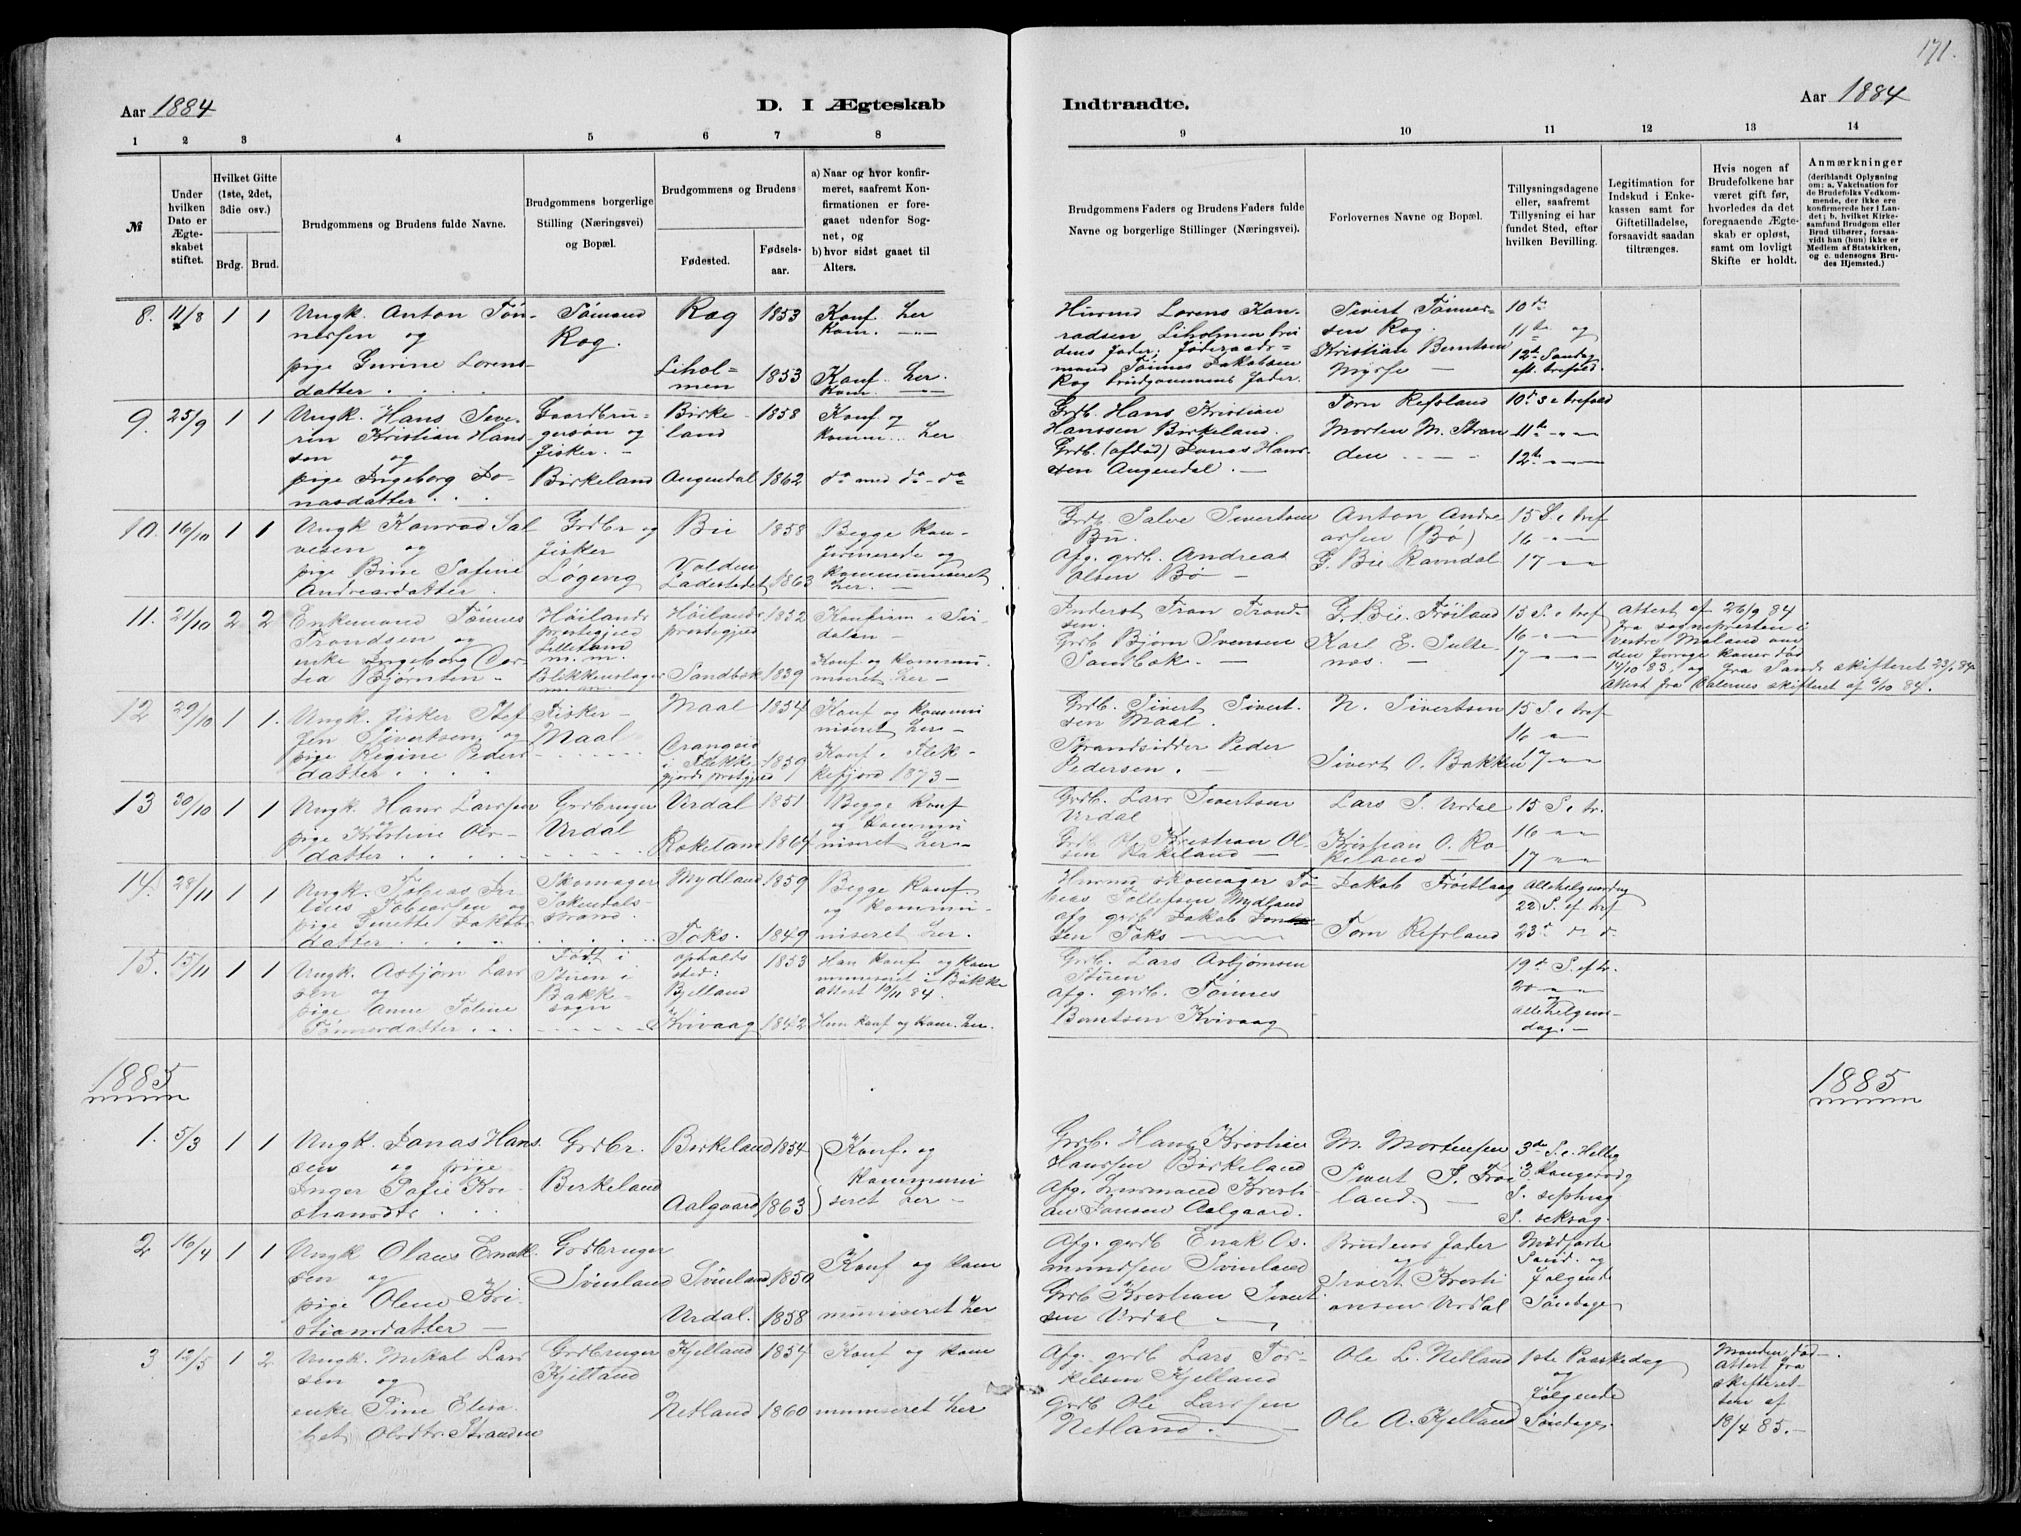 171.
Aar 1884
D. I Ægteskab
Indtraadte.
Aar 1884
1 2 3 4 5 6 7 8
9 10 11 12 13 14
№
Under hvilken Dato er Ægteskabet stiftet.
Hvilket Gifte (1ste, 2det, 3die osv.)
Brdg. Brud.
Brudgommens og Brudens fulde Navne.
Brudgommens borgerlige Stilling (Næringsvei) og Bopæl.
Brudgommens og Brudens
Fødested.
Fødselsaar.
a) Naar og hvor konfirmeret, saafremt Konfirmationen er foregaaet udenfor Sognet, og
b) hvor sidst gaaet til Alters.
Brudgommens Faders og Brudens Faders fulde Navne og borgerlige Stillinger (Næringsvei).
Forlovernes Navne og Bopæl.
Tillysningsdagene eller, saafremt Tillysning ei har fundet Sted, efter hvilken Bevilling.
Legitimation for Indskud i Enkekassen samt for Giftetilladelse, forsaavidt saadan tiltrænges.
Hvis nogen af Brudefolkene har været gift før, hvorledes da det foregaaende Ægteskab er opløst, samt om lovligt Skifte er holdt.
Anmærkninger
(deriblandt Oplysning om: a. Vakcination for de Brudefolks Vedkommende, der ikke ere konfirmerede her i Landet; b. hvilket Kirkesamfund Brudgom eller Brud tilhører, forsaavidt han (hun) ikke er Medlem af Statskirken, og c. udensogns Brudes Hjemsted.)
8. 11/8 1 1
Ungk. Anton Tønnessen og
pige Gurine Lorensdatter
Sømand
Rog.
Rog 1853
Liholmen 1853
Konf. her
Kom. -"-
Konf. her.
Kom. -"-
Husmd Lorens Konradsen Liholmen brudens fader; Føderaadsmand Tønnes Jakobsen Rog brudgommens fader.
Sivert Tønnessen Rog.
Kristian Berntsen Myrse
10de
11te og
12te Søndag
eft. trefold.
9. 25/9 1 1
Ungk. Hans Severin Kristian Hanssøn og
pige Ingeborg Jonasdatter
Gaardbrugersøn og fisker. -
Birkeland
Birkeland 1858
Augendal 1862
Konf. og komm... her
do med do - do
Grdb. Hans Kristian Hanssen Birkeland.
Grdb. (afdød) Jonas Hanssen Augendal. -
Torn Refsland
Morten M. Stranden
10de S e trefold
11te - " - "
12te - " - "
10. 16/10 1 1
Ungk. Konrad Salvesen og
pige Bine Sofine Andreasdatter
Grdbr og fisker
Løgeng
Bu 1858
Valden Ladestedet 1863
Begge konfirmerede og kommuniseret her. -
Grdb. Salve Sivertsen Bu.
Afg. grdb. Andreas Olsen Bø -
Anton Andreassen (Bø)
G. Bie Ramdal
15 S. e tref
16 - " - "
17 - " - "
11. 21/10 2 2
Enkemand Tønnes Trondsen og
enke Ingeborg Corsea Bjørnsen -
Høilands prestegjeld
m. m.
Blikkenslager
Høilands prestegjeld 1852
Sandbek 1839
Konfirm e Sirdalen -
Konf og kommuniseret her -
Inderst Tron Trondsen.
Grdb Bjørn Svensen Sandbæk. -
G. Bie. Frøiland
Karl E. Sultenæs. -
15 S. e tref
16 - " - "
17 - " - "
Attest af 26/9 84
fra sognepresten i
vestre Moland om
den forrige kones død
14/10 83. og fra Sands skifteret 23/1 84
attest fra Dalernes skifteret af 6/10 84.
12 29/10 1 1.
Ungk. fisker Steffen Sivertsen og
pige Regine Pedersdatter
Fisker -
Maal
Maal 1854
i Flekkefjords prestegjeld 1859
Konf og kommuniseret her -
Konf e Flekkefjord 1873 -
Grdb. Sivert Sivertsen Maal.
Strandsidder Peder Pedersen. -
N. Sivertsen
Sivert O. Bakken
15 S. e tref
16 - "
17 - " - "
13 30/10 1 1
Ungk. Hans Larssen og
pige Kristine Olsdatter
Grdbruger
Urdal
Urdal 1851
Rokeland 1864
Begge konf og kommuniseret her -
Grdb. Lars Sivertsen Urdal
Grdb Ole Kristian Olsen Rokeland -
Lars S. Urdal
Kristian O. Rokeland -
15 S. e tr.
16 - " - "
17 - " - "
14. 28/11 1 1
Ungk. Tobias Julius Tobiassen og
pige Jenette Jakobsdatter
Skomager
Sokendalsstrand.
Mydland 1859
Foks. 1849
Begge konf. og kommuniseret her.
Husmd skomager Tobias Tollefsen Mydland
afg grdb Jakob Jonassen Foks
Jakob Frøitlaag
Torn Refsland
Allehelgensdag
22 S. ef tref
23de " "
15. 15/11 1 1
Ungk. Asbjørn Larssen og
pige Anne Toline Tønnesdatter
Født i Stuen i Bakke sogn
opholdssted: Bjelland 1853
Kvivaag 1842
Han konf og kommuniseret i Bakke
attest 10/11 84.
Hun konf og kom. her.
Grdb. Lars Asbjørnsen Stuen
afg. grdb. Tønnes Berntsen Kvivaag
19de S. ef tr.
20 - " - "
og
Allehelgensdag. -
1885
1885
1. 5/3 1 1
Ungk. Jonas Hanssen og pige
Inger Sofie Kristiansdtr
Grdbr.
Birkeland
Birkeland 1854
Aalgaard 1863
Konf. og kommuniseret her -
Grdb. Hans Kristian Hanssen Birkeland
Afg. Husmand Kristian Jonsen Aalgaard.
M. Mortensen
Sivert S. Frøiland.
3de S. e. Hellig
3 kongersdg
S. septuag
S. seksag.
2 16/4 1 1
Ungk Olaus Enoksen og
pige Olene Kristiansdatter -
Grdbruger
Svinland
Svinland 1850
Urdal 1858
Konf og kommuniseret her
Afg. grdb Enok Osmundsen Svinland
Grdb Kristian Sivertsen Urdal -
Brudens fader og
Sivert Kristiansen Urdal
Midfaste
Sønd. og
følgende
Søndage
3 12/5 1 2
Ungk. Mikal Larssen og
enke Sine Elisabet Olsdtr. Stranden
Grdbruger
Kjelland
Kjelland 1854
Netland 1860
Konf og kommuniseret her
Afg. grdb Lars Torkelsen Kjelland
Grdb Ole Larssen Netland. -
Ole L. Netland
Ole A. Kjelland
1ste Paaskedag
og
følgende
Søndage.
Manden død -.
Attest fra
skifteret
ten af
18/4 85. -